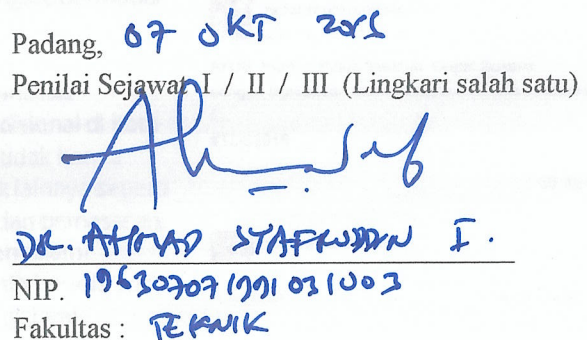 Padang, 07 OKT 2015
Penilai Sejawat I / II / III (Lingkari salah satu)
DR. AHMAD SYAFRUDDIN I.
NIP. 196307071991031003
Fakultas : TEKNIK